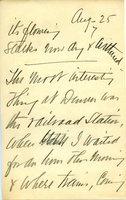 Aug-25
its flowering
stalks now dry &
7
The most interesting
thing at Denver was
the railroad station
where I waited
for an hour this morning
& where trains, coming